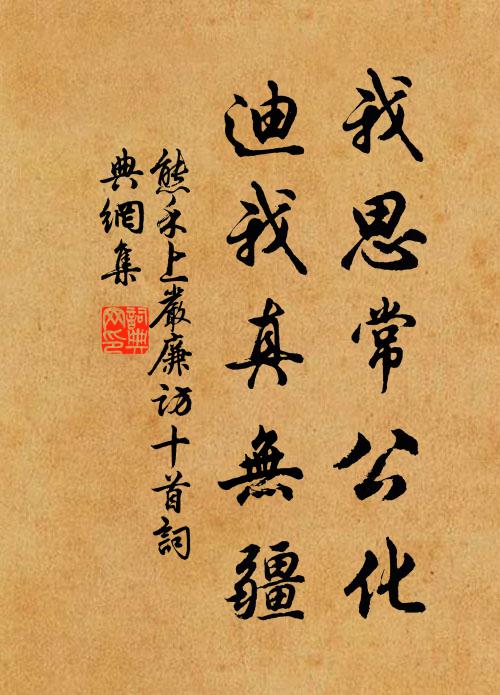 我思常公化
迪我真無疆
熊禾上嚴廉訪十首詞
典網集
詞典網印